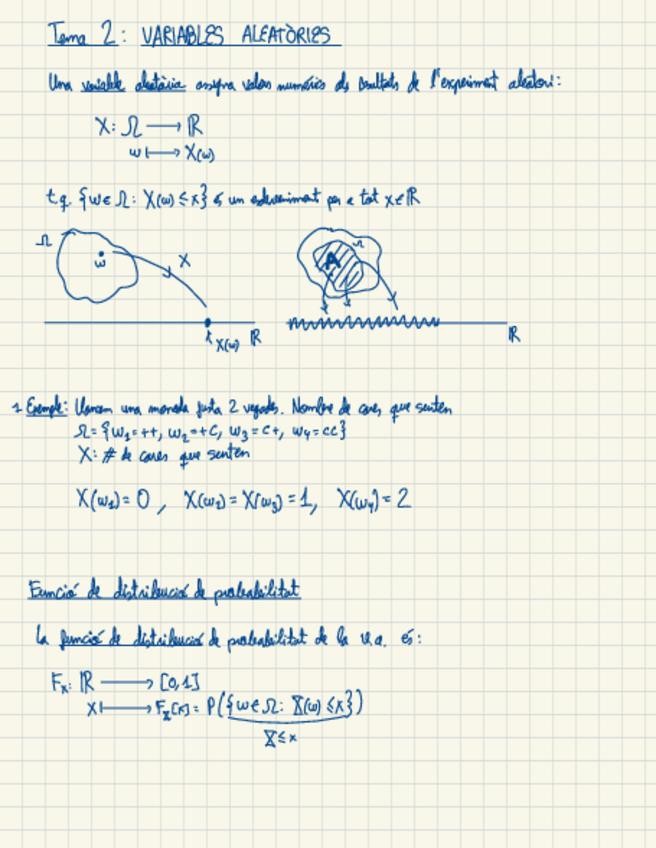 Tema 2: VARIABLES ALEATÒRIES
Una variable aleatòria assigna valors numèrics als resultats de l'experiment aleatori:
X: Ω → ℝ
ω ↦ X(ω)
t.q. {ω ∈ Ω: X(ω) ≤ x} és un esdeveniment per a tot x ∈ ℝ
Ω
ω
X
X(ω)
ℝ
Ω
A
ℝ
1 Exemple: Llancem una moneda justa 2 vegades. Nombre de cares que surten
Ω = {ω₁=++, ω₂=+C, ω₃=C+, ω₄=CC}
X: # de cares que surten
X(ω₁)=0, X(ω₂)=X(ω₃)=1, X(ω₄)=2
Funció de distribució de probabilitat
La funció de distribució de probabilitat de la v.a. és:
Fₓ: ℝ → [0,1]
x ↦ Fₓ(x) = P({ω ∈ Ω: X(ω) ≤ x})
X ≤ x